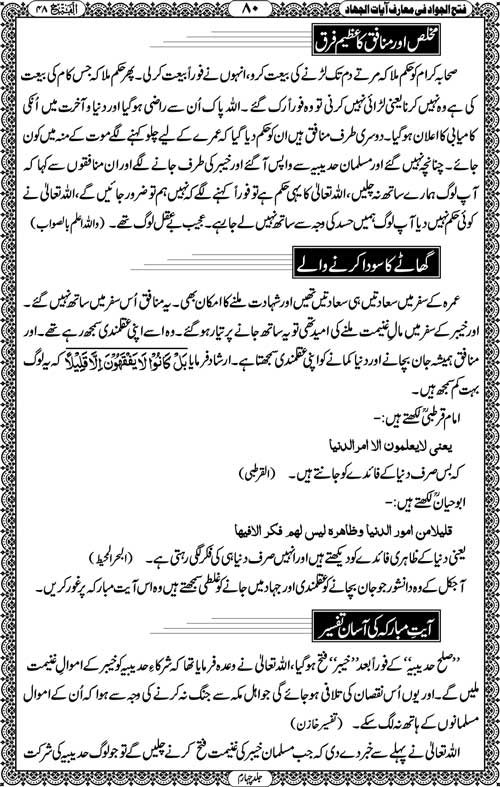 فتح الجواد فی معارف آیات الجہاد
۸۰
الفتح ۴۸
مخلص اور منافق کا عظیم فرق
صحابہ کرام کو حکم ملا کہ مرتے دم تک لڑنے کی بیعت کرو، انہوں نے فوراً بیعت کرلی۔ پھر حکم ملا کہ جس کام کی بیعت
کی ہے وہ نہیں کرنا یعنی لڑائی نہیں کرنی تو وہ فوراً رک گئے۔ اللہ پاک اُن سے راضی ہوگیا اور دنیا و آخرت میں اُنکی
کامیابی کا اعلان ہوگیا۔ دوسری طرف منافق ہیں ان کو حکم دیا گیا کہ عمرے کے لیے چلو کہنے لگے موت کے منہ میں کون
جائے۔ چنانچہ نہیں گئے اور مسلمان حدیبیہ سے واپس آگئے اور خیبر کی طرف جانے لگے اور ان منافقوں سے کہا کہ
آپ لوگ ہمارے ساتھ نہ چلیں، اللہ تعالیٰ کا یہی حکم ہے تو فوراً کہنے لگے کہ نہیں ہم تو ضرور جائیں گے، اللہ تعالیٰ نے
کوئی حکم نہیں دیا آپ لوگ ہمیں حسد کی وجہ سے ساتھ نہیں لے جارہے۔ عجیب بے عقل لوگ تھے۔ (واللہ اعلم بالصواب)
گھاٹے کا سودا کرنے والے
عمرہ کے سفر میں سعادتیں ہی سعادتیں تھیں اور شہادت ملنے کا امکان بھی۔ یہ منافق اُس سفر میں ساتھ نہیں گئے۔
اور خیبر کے سفر میں مال غنیمت ملنے کی امید تھی تو یہ ساتھ جانے پر تیار ہوگئے۔ وہ اسے اپنی عقلمندی سمجھ رہے تھے۔ اور
منافق ہمیشہ جان بچانے اور دنیا کمانے کو اپنی عقلمندی سمجھتا ہے۔ ارشاد فرمایا بَلْ كَانُوْا لَا يَفْقَهُوْنَ اِلَّا قَلِيْلًا کہ یہ لوگ
بہت کم سمجھ ہیں۔
امام قرطبیؒ لکھتے ہیں:-
یعنی لایعلمون الا امر الدنیا
کہ بس صرف دنیا کے فائدے کو جانتے ہیں۔ (القرطبی)
ابو حیانؒ لکھتے ہیں:-
قلیلا من امور الدنیا وظاہرہ لیس لہم فکر الافیہا
یعنی دنیا کے ظاہری فائدے کو دیکھتے ہیں اور انہیں صرف دنیا ہی کی فکر لگی رہتی ہے۔ (البحر المحیط)
آجکل کے وہ دانشور جو جان بچانے کو عقلمندی اور جہاد میں جانے کو غلطی سمجھتے ہیں وہ اس آیت مبارکہ پر غور کریں۔
آیت مبارکہ کی آسان تفسیر
“صلح حدیبیہ” کے فوراً بعد “خیبر” فتح ہوگیا، اللہ تعالیٰ نے وعدہ فرمایا تھا کہ شرکاءِ حدیبیہ کو خیبر کے اموالِ غنیمت
ملیں گے۔ اور یوں اُس نقصان کی تلافی ہوجائے گی جو اہل مکہ سے جنگ نہ کرنے کی وجہ سے ہوا کہ اُن کے اموال
مسلمانوں کے ہاتھ نہ لگ سکے۔ (تفسیر خازن)
اللہ تعالیٰ نے پہلے سے خبر دے دی کہ جب مسلمان خیبر کی غنیمت فتح کرنے چلیں گے تو جو لوگ حدیبیہ کی شرکت
جلد چہارم